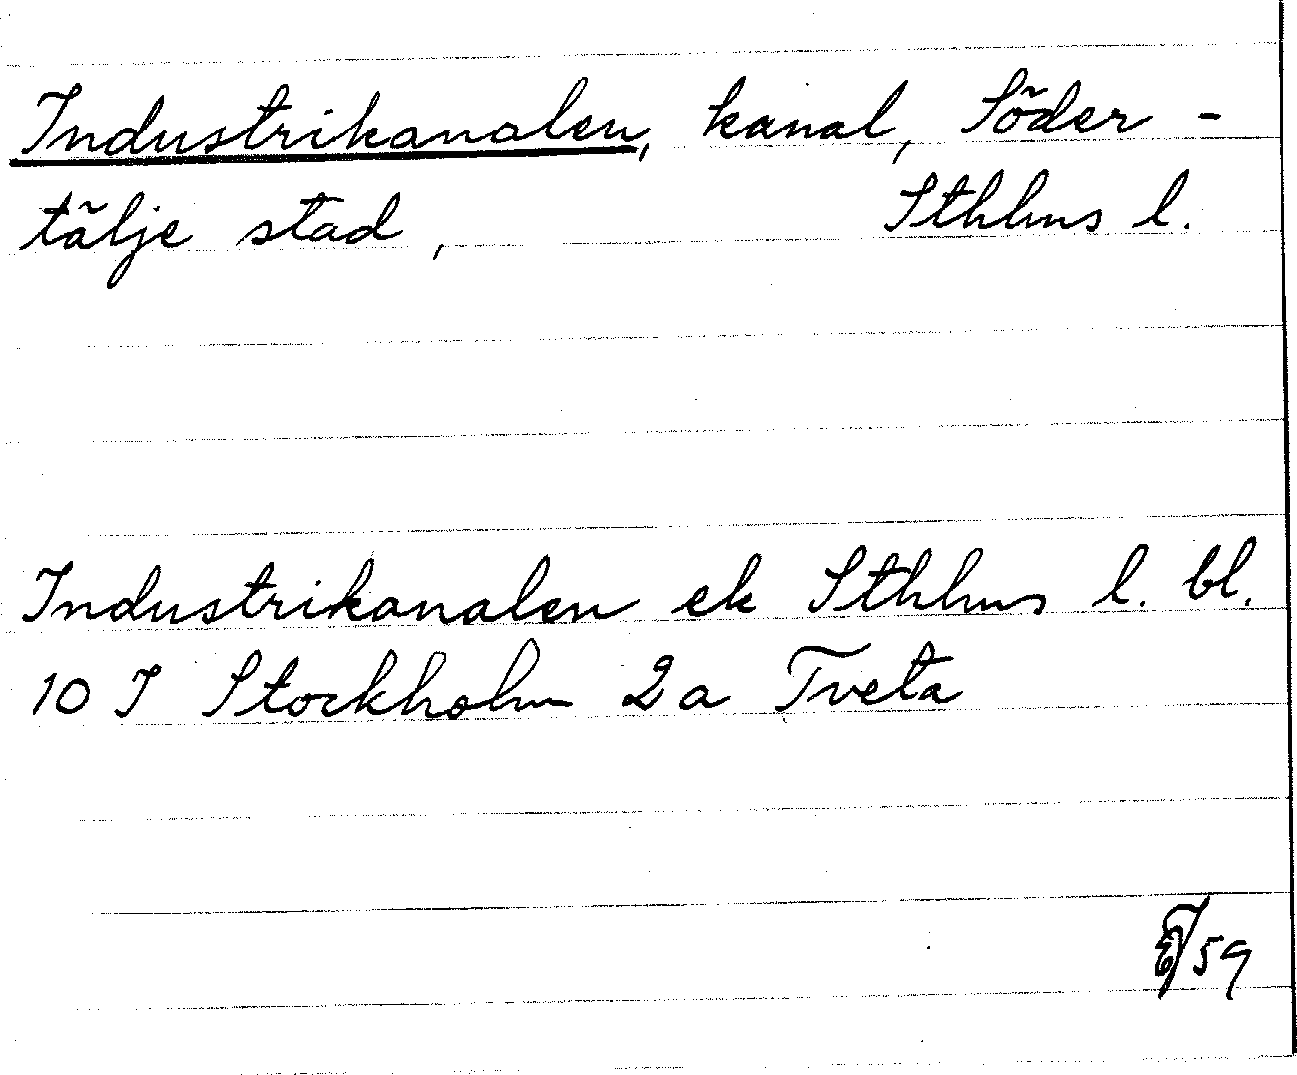 Industrikanalen, kanal, Söder-
tälje stad, Sthlms l.
Industrikanalen ek Sthlms l. bl.
10 I Stockholm 2a Tveta
59